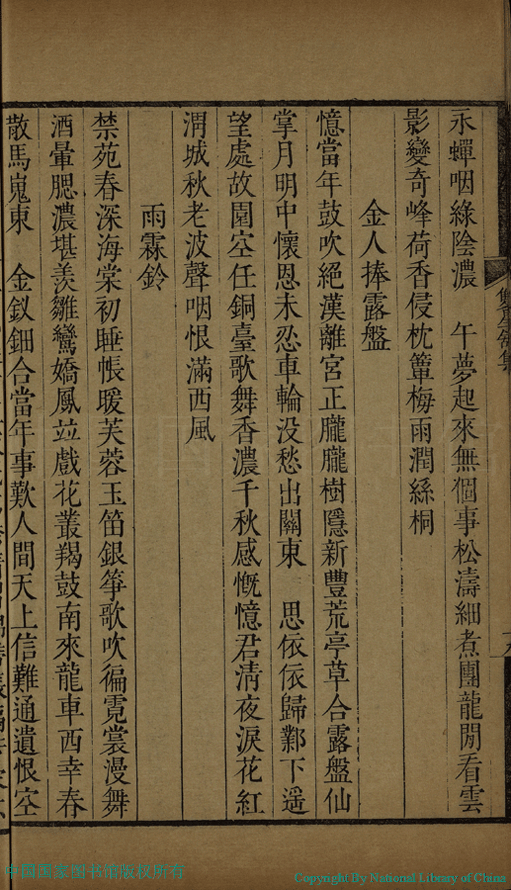 永蟬咽綠陰濃　午夢起來無個事松濤細煮團龍閒看雲
影變奇峰荷香侵枕簟梅雨潤絲桐
金人捧露盤
憶當年鼓吹絕漢離宮正朧朧樹隱新豐荒亭草合露盤仙
掌月明中懷恩未忍車輪没愁出關東　思依依歸鄴下遥
望處故園空任銅臺歌舞香濃千秋感慨憶君清夜淚花紅
渭城秋老波聲咽恨滿西風
雨霖鈴
禁苑春深海棠初睡帳暖芙蓉玉笛銀箏歌吹徧霓裳漫舞
酒暈腮濃堪羡雛鸞嬌鳳竝戲花叢羯鼓南來龍車西幸春
散馬嵬東　金釵鈿合當年事歎人間天上信難通遺恨空
中国国家图书馆版权所有
Copyright By National Library of China